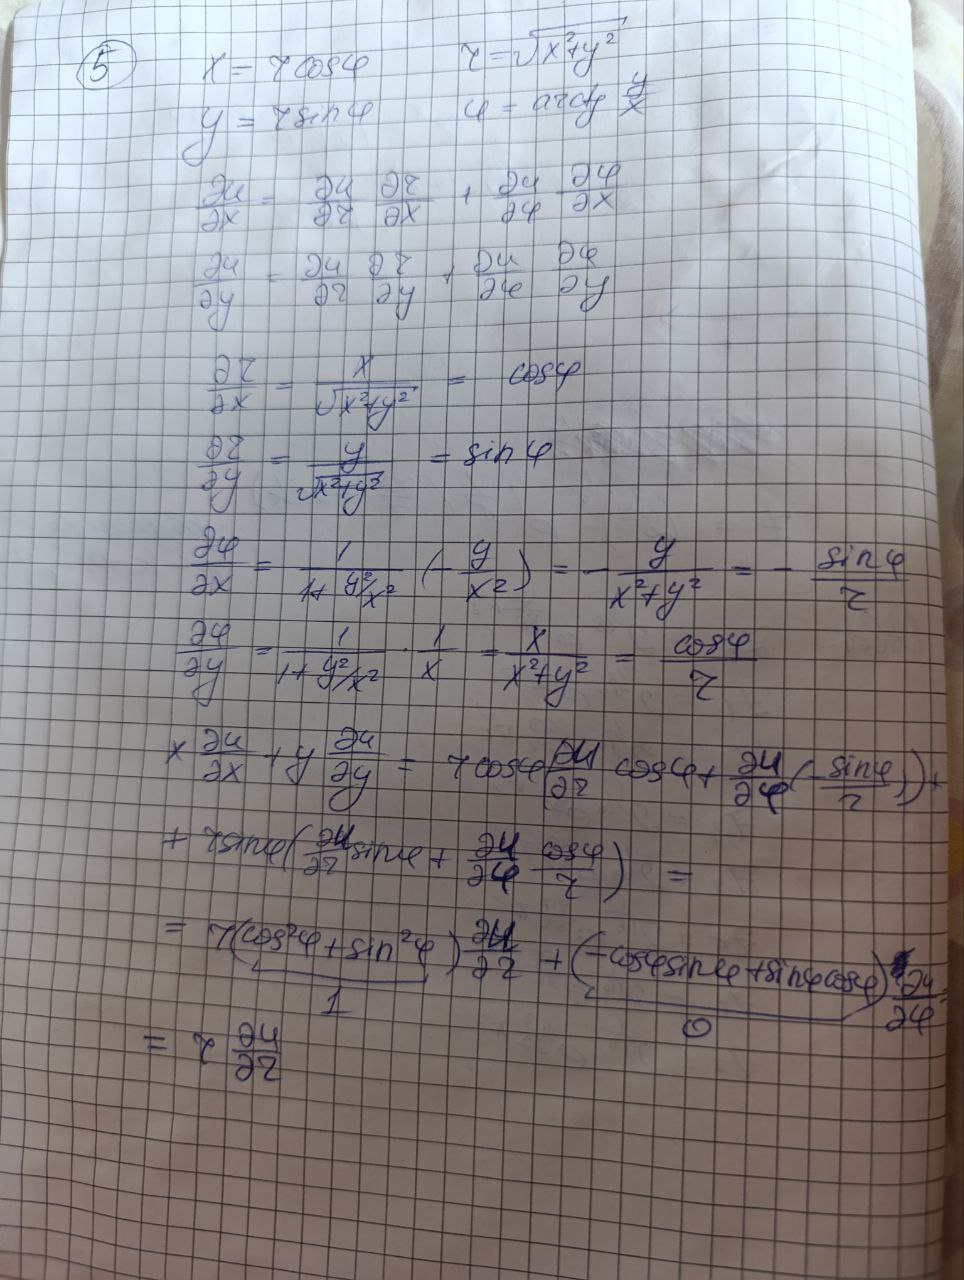 5 x = r cosφ r = √(x²+y²)
y = r sinφ φ = arctg y/x
∂u/∂x = ∂u/∂r ∂r/∂x + ∂u/∂φ ∂φ/∂x
∂u/∂y = ∂u/∂r ∂r/∂y + ∂u/∂φ ∂φ/∂y
∂r/∂x = x/√(x²+y²) = cosφ
∂r/∂y = y/√(x²+y²) = sinφ
∂φ/∂x = 1/(1+y²/x²) (-y/x²) = -y/(x²+y²) = -sinφ/r
∂φ/∂y = 1/(1+y²/x²) · 1/x = x/(x²+y²) = cosφ/r
x ∂u/∂x + y ∂u/∂y = r cosφ(∂u/∂r cosφ + ∂u/∂φ (-sinφ/r)) +
+ r sinφ(∂u/∂r sinφ + ∂u/∂φ cosφ/r) =
= r(cos²φ + sin²φ) ∂u/∂r + (-cosφ sinφ + sinφ cosφ) ∂u/∂φ =
1 0
= r ∂u/∂r